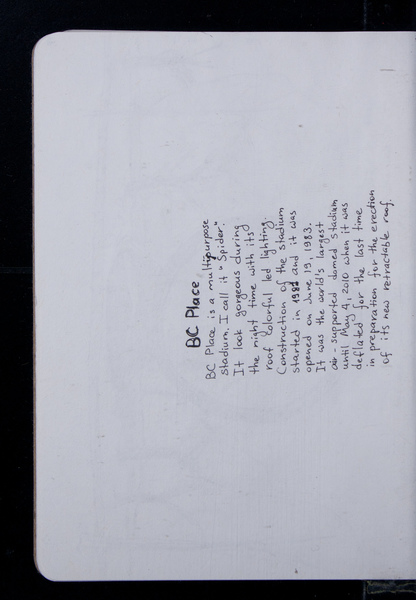 BC Place
BC Place is a multipurpose
stadium. I call it "Spider".
It look gorgeous during
the night time with its
roof colorful led lighting.
Construction of the stadium
started in 1981 and it was
opened on June 19, 1983.
It was the world's largest
air-supported domed stadium
until May 4, 2010 when it was
deflated for the last time
in preparation for the erection
of its new retractable roof.